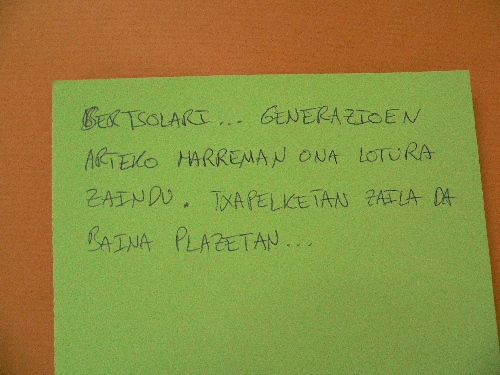 BERTSOLARI... GENERAZIOEN
ARTEKO HARREMAN ONA LOTURA
ZAINDU. TXAPELKETAN ZAILA DA
BAINA PLAZETAN...